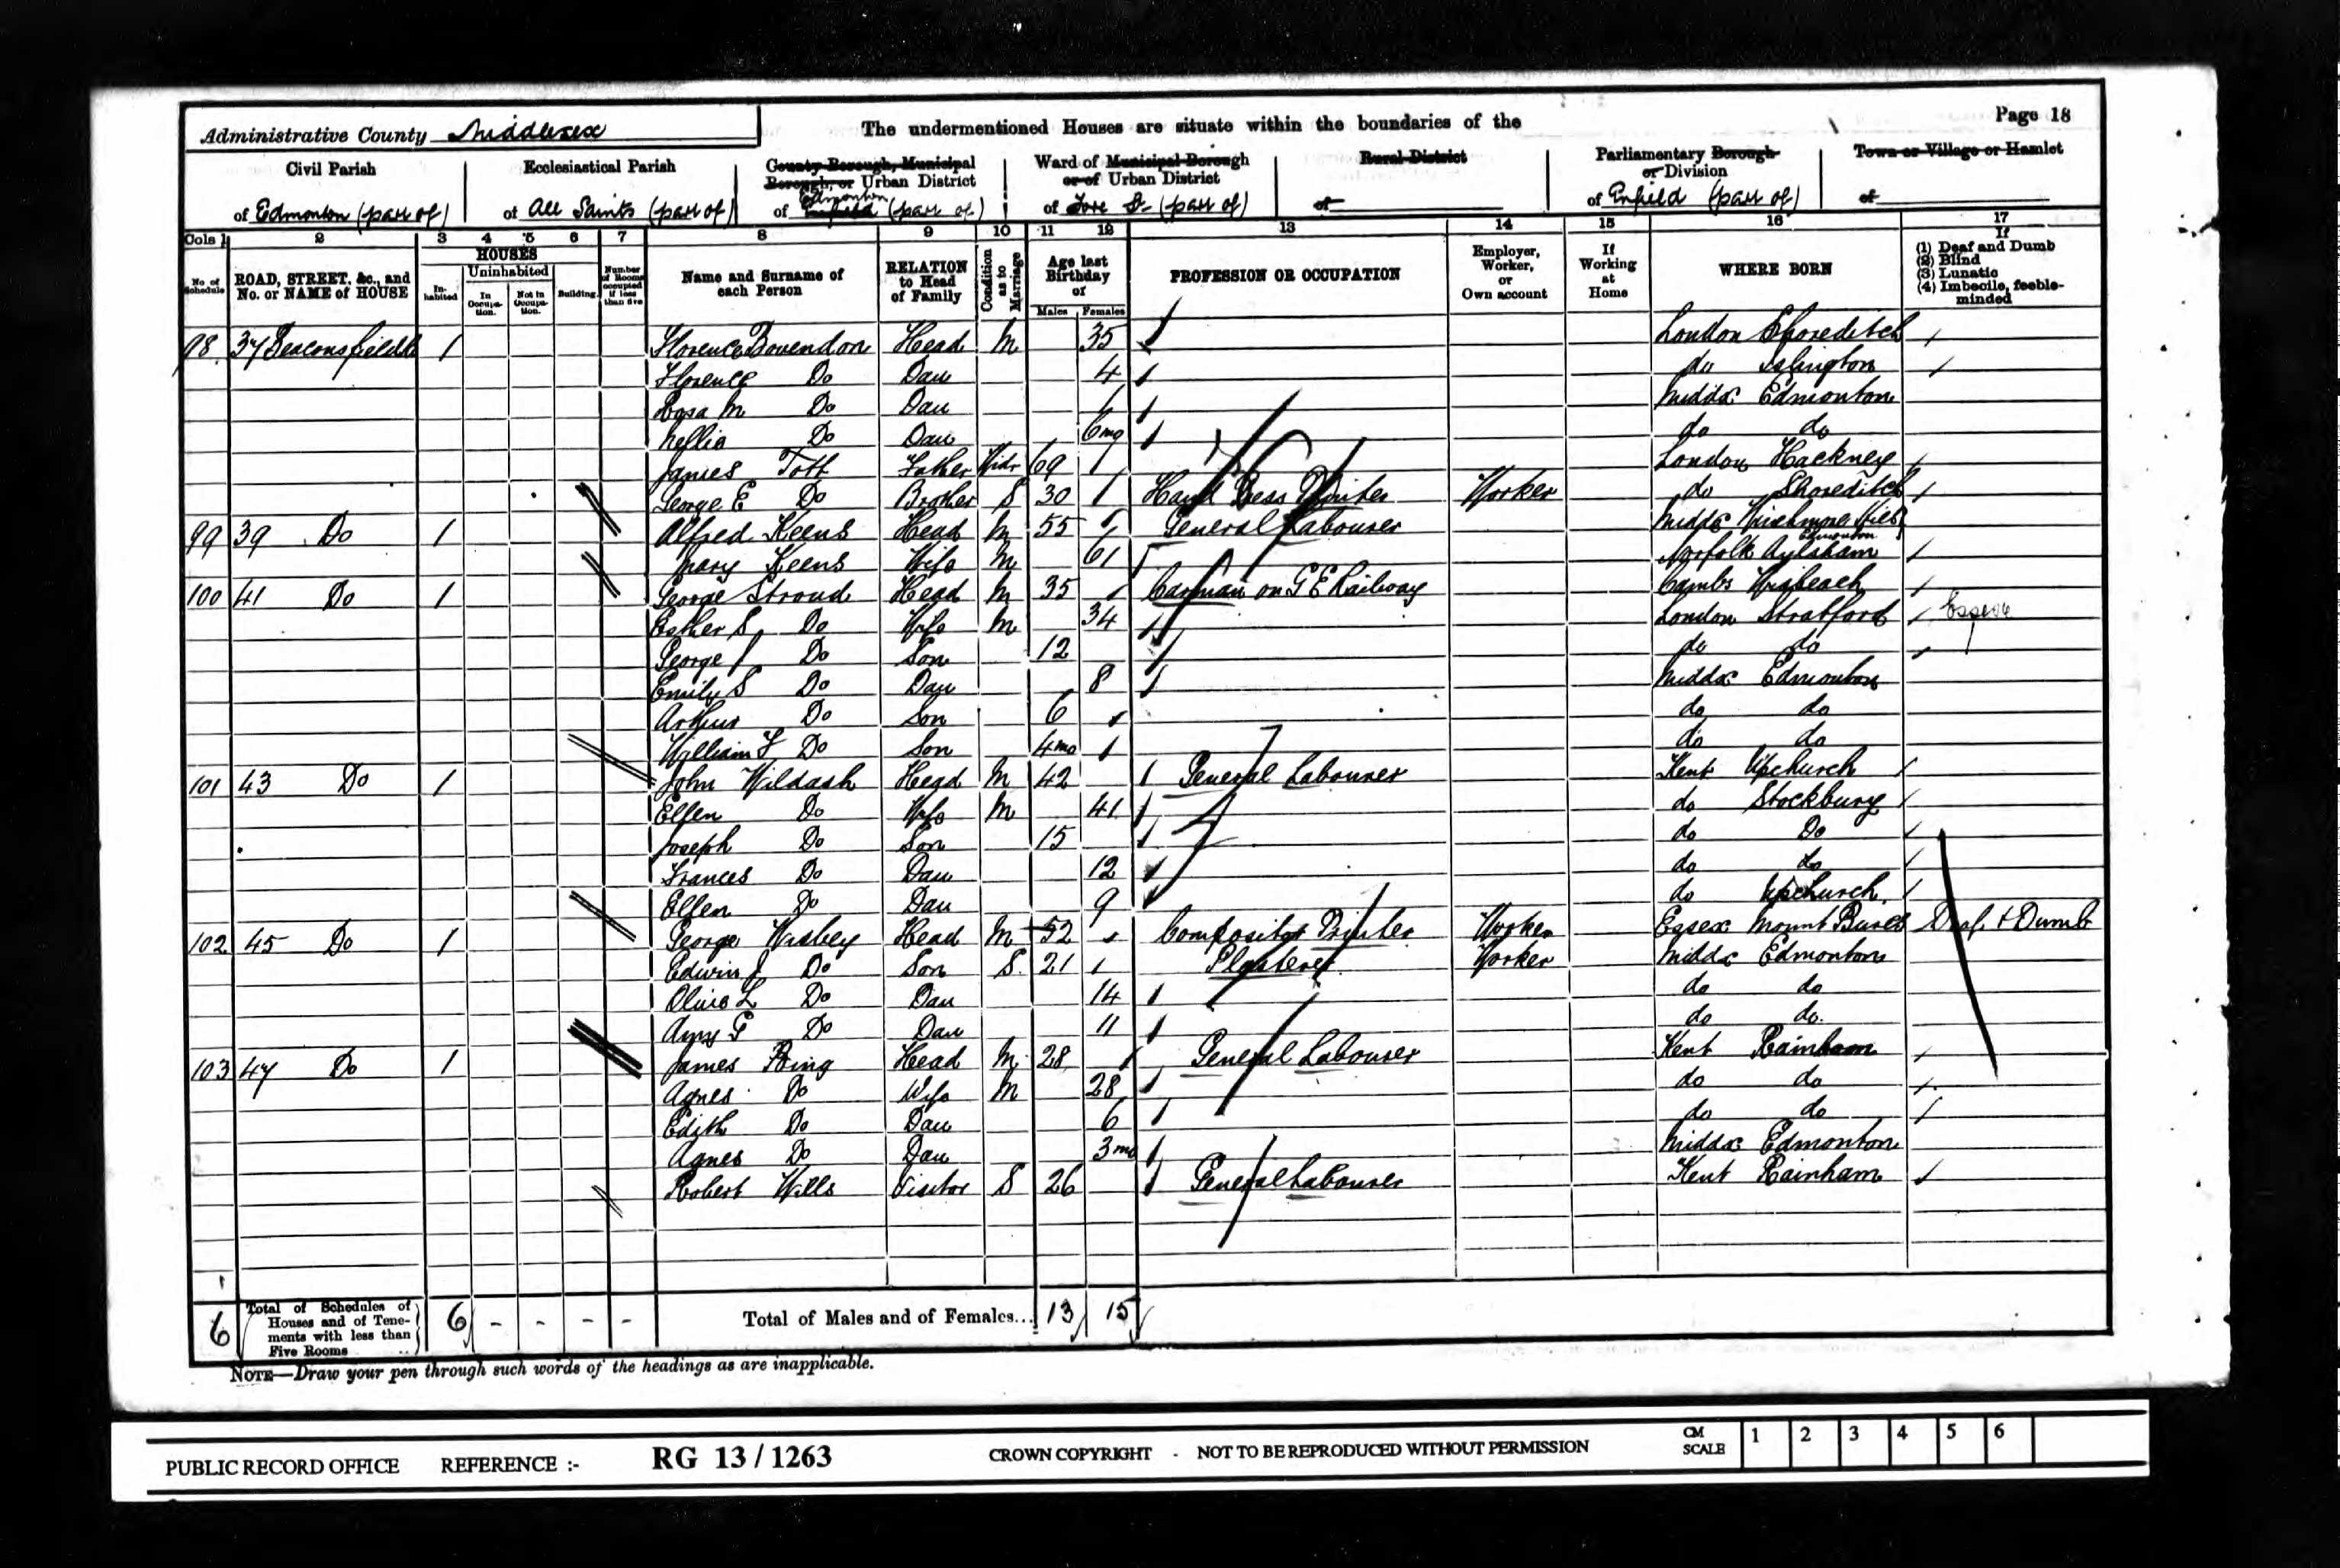 Page 18
Administrative County Middlesex
The undermentioned Houses are situate within the boundaries of the
Civil Parish
of Edmonton (part of)
Ecclesiastical Parish
of All Saints (part of)
County Borough, Municipal Borough, or Urban District
of Edmonton Enfield (part of)
Ward of Municipal Borough or of Urban District
of Fore St (part of)
Rural District
of
Parliamentary Borough or Division
of Enfield (part of)
Town or Village or Hamlet
of
Cols 1 2 3 4 5 6 7 8 9 10 11 12 13 14 15 16 17
No of Schedule
ROAD, STREET, &c., and No. or NAME of HOUSE
HOUSES
Inhabited
Uninhabited
In Occupation.
Not in Occupation.
Building.
Number of Rooms occupied if less than five
Name and Surname of each Person
RELATION to Head of Family
Condition as to Marriage
Age last Birthday of
Males Females
PROFESSION OR OCCUPATION
Employer, Worker, or Own account
If Working at Home
WHERE BORN
If
(1) Deaf and Dumb
(2) Blind
(3) Lunatic
(4) Imbecile, feeble-minded
98 37 Beaconsfield 1 Florence Bovendon Head M 35 London Shoreditch
Florence Do Dau 4 do Islington
Rosa M Do Dau 1 Middx Edmonton
Nellie Do Dau 6mo do do
James Father Widr 69 London Hackney
George E Do Brother S 30 Hand Press Printer Worker do Shoreditch
99 39 Do 1 Alfred Keens Head M 55 General Labourer Middx Winchmore Hill Edmonton
Mary Keens Wife M 61 Norfolk Aylsham
100 41 Do 1 George Stroud Head M 35 Carman on G E Railway Cambs Wisbeach
Esther S Do Wife M 34 London Stratford Essex
George J Do Son 12 do do
Emily S Do Dau 8 Middx Edmonton
Arthur Do Son 6 do do
William F Do Son 4mo do do
101 43 Do 1 John Wildash Head M 42 General Labourer Kent Upchurch
Ellen Do Wife M 41 do Stockbury
Joseph Do Son 15 do Do
Frances Do Dau 12 do do
Ellen Do Dau 9 do Upchurch
102 45 Do 1 George Wisbey Head M 52 Compositor Printer Worker Essex Mount Bures Deaf & Dumb
Edwin J Do Son S 21 Plasterer Worker Middx Edmonton
Olive L Do Dau 14 do do
Amy G Do Dau 11 do do
103 47 Do 1 James Ring Head M 28 General Labourer Kent Rainham
Agnes Do Wife M 28 do do
Edith Do Dau 6 do do
Agnes Do Dau 3mo Middx Edmonton
Robert Wills Visitor S 26 General Labourer Kent Rainham
6 Total of Schedules of Houses and of Tenements with less than Five Rooms 6 - - - - Total of Males and of Females... 13 15
NOTE—Draw your pen through such words of the headings as are inapplicable.
PUBLIC RECORD OFFICE REFERENCE :- RG 13 / 1263 CROWN COPYRIGHT - NOT TO BE REPRODUCED WITHOUT PERMISSION CM SCALE 1 2 3 4 5 6